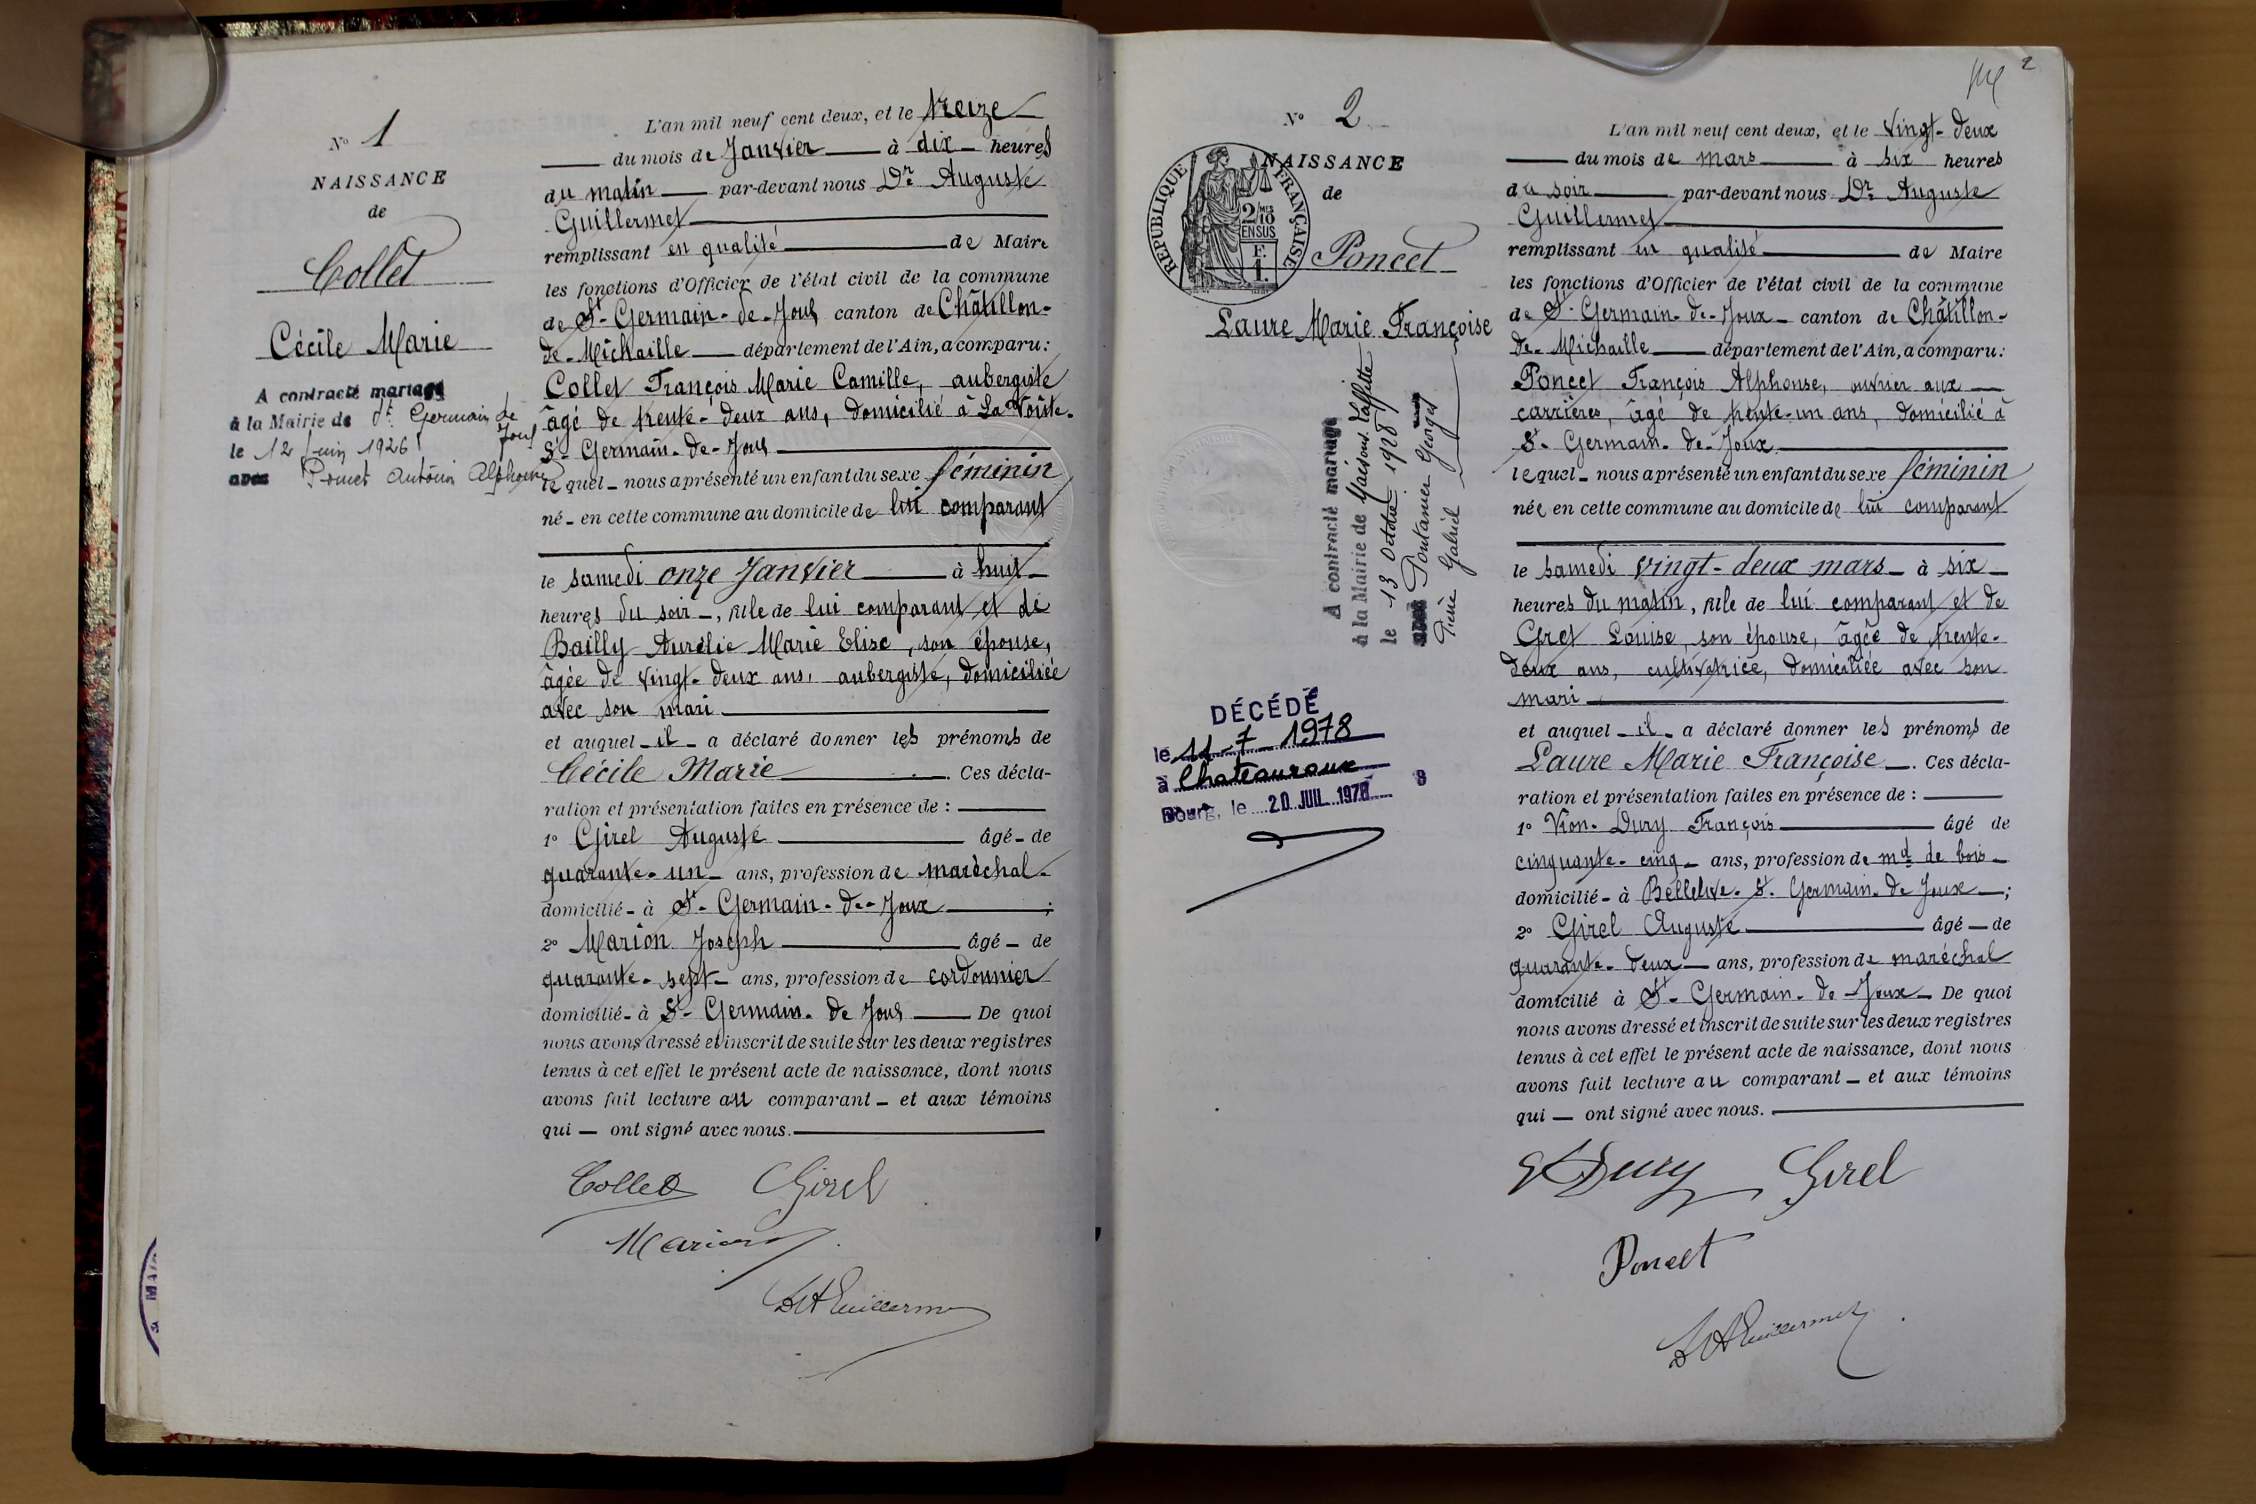 N° 1
NAISSANCE
de
Collet
Cécile Marie
A contracté mariage
à la Mairie de St Germain de
Joux
le 12 Juin 1926
avec Poncet Antonin Alphonse
L'an mil neuf cent deux, et le treize
du mois de Janvier à dix heures
du matin par-devant nous Dr Auguste
Guillermet
remplissant en qualité de Maire
les fonctions d'Officier de l'état civil de la commune
de St-Germain-de-Joux canton de Châtillon-
de-Michaille département de l'Ain, a comparu:
Collet François Marie Camille, aubergiste
âgé de trente-deux ans, domicilié à La Voûte-
St-Germain-de-Joux
lequel nous a présenté un enfant du sexe féminin
né en cette commune au domicile de lui comparant
le samedi onze Janvier à huit
heures du soir, fille de lui comparant et de
Bailly Aurélie Marie Elise, son épouse,
âgée de vingt-deux ans, aubergiste, domiciliée
avec son mari
et auquel il a déclaré donner les prénoms de
Cécile Marie. Ces décla-
ration et présentation faites en présence de :
1° Girel Auguste âgé de
quarante-un ans, profession de maréchal
domicilié à St-Germain-de-Joux ;
2° Marion Joseph âgé de
quarante-sept ans, profession de cordonnier
domicilié à St-Germain-de Joux De quoi
nous avons dressé et inscrit de suite sur les deux registres
tenus à cet effet le présent acte de naissance, dont nous
avons fait lecture au comparant et aux témoins
qui ont signé avec nous.
Collet Girel
Marion
Dr A Guillermet
2
N° 2
NAISSANCE
de
RÉPUBLIQUE FRANÇAISE
2/10
MES
EN SUS
F.
1.
Poncet
Laure Marie Françoise
A contracté mariage
à la Mairie de Maisons-Laffitte
le 13 Octobre 1928
avec Pontanier Georges
Pierre Gabriel
DÉCÉDÉ
le 11-7-1978
à Chateauroux
Bourg, le 20 JUIL 1978
L'an mil neuf cent deux, et le vingt-deux
du mois de mars à six heures
du soir par-devant nous Dr Auguste
Guillermet
remplissant en qualité de Maire
les fonctions d'Officier de l'état civil de la commune
de St-Germain-de-Joux canton de Châtillon-
de-Michaille département de l'Ain, a comparu:
Poncet François Alphonse, ouvrier aux
carrières, âgé de trente-un ans, domicilié à
St-Germain-de-Joux
lequel nous a présenté un enfant du sexe féminin
née en cette commune au domicile de lui comparant
le samedi vingt-deux mars à six
heures du matin, fille de lui comparant et de
Gret Louise, son épouse, âgée de trente-
deux ans, cultivatrice, domiciliée avec son
mari
et auquel il a déclaré donner les prénoms de
Laure Marie Françoise. Ces décla-
ration et présentation faites en présence de :
1° Vion-Dury François âgé de
cinquante-cinq ans, profession de md de bois
domicilié à Belleive-St-Germain-de Joux ;
2° Girel Auguste âgé de
quarante-deux ans, profession de maréchal
domicilié à St-Germain-de-Joux De quoi
nous avons dressé et inscrit de suite sur les deux registres
tenus à cet effet le présent acte de naissance, dont nous
avons fait lecture au comparant et aux témoins
qui ont signé avec nous.
Dury Girel
Poncet
Dr A Guillermet